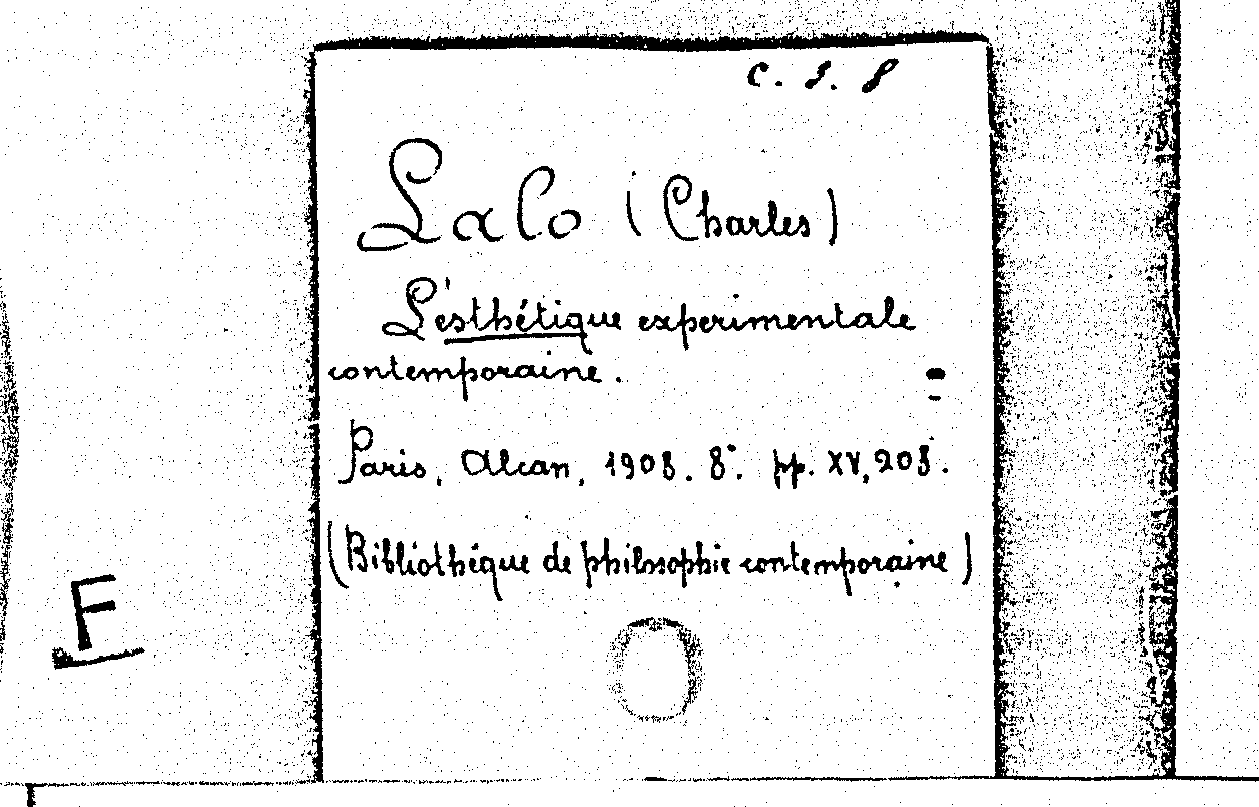 C. 3. 8
Lalo (Charles)
L'esthétique experimentale
contemporaine.
Paris, Alcan, 1908. 8°. pp. XV, 208.
(Bibliothéque de philosophie contemporaine)
F